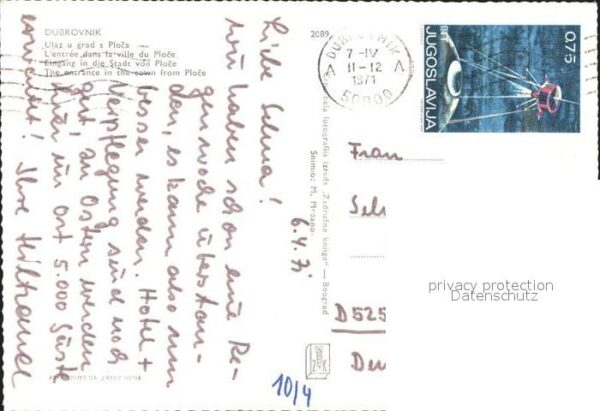 DUBROVNIK
Ulaz u grad s Ploča
L'entrée dans la ville du Ploče
Eingang in die Stadt von Ploče
The entrance in the town from Ploče
2089
DUBROVNIK
7-IV
11-12
1971
50000
A A
0,75
JUGOSLAVIJA
6.4.71
Liebe Selma!
wir haben schon eine Re-
genwoche überstan-
den, es kann also nur
besser werden. Hotel +
Verpflegung sind noch
gut an Ostern werden
hier im Ort 5.000 Gäste
erwartet! Ihre Hiltranel
Izrađeno fotografija Izdanje "Zadružna knjiga" — Beograd
Snimio: M. Mršano
Frau
Sel
D525
privacy protection
Datenschutz
10/4